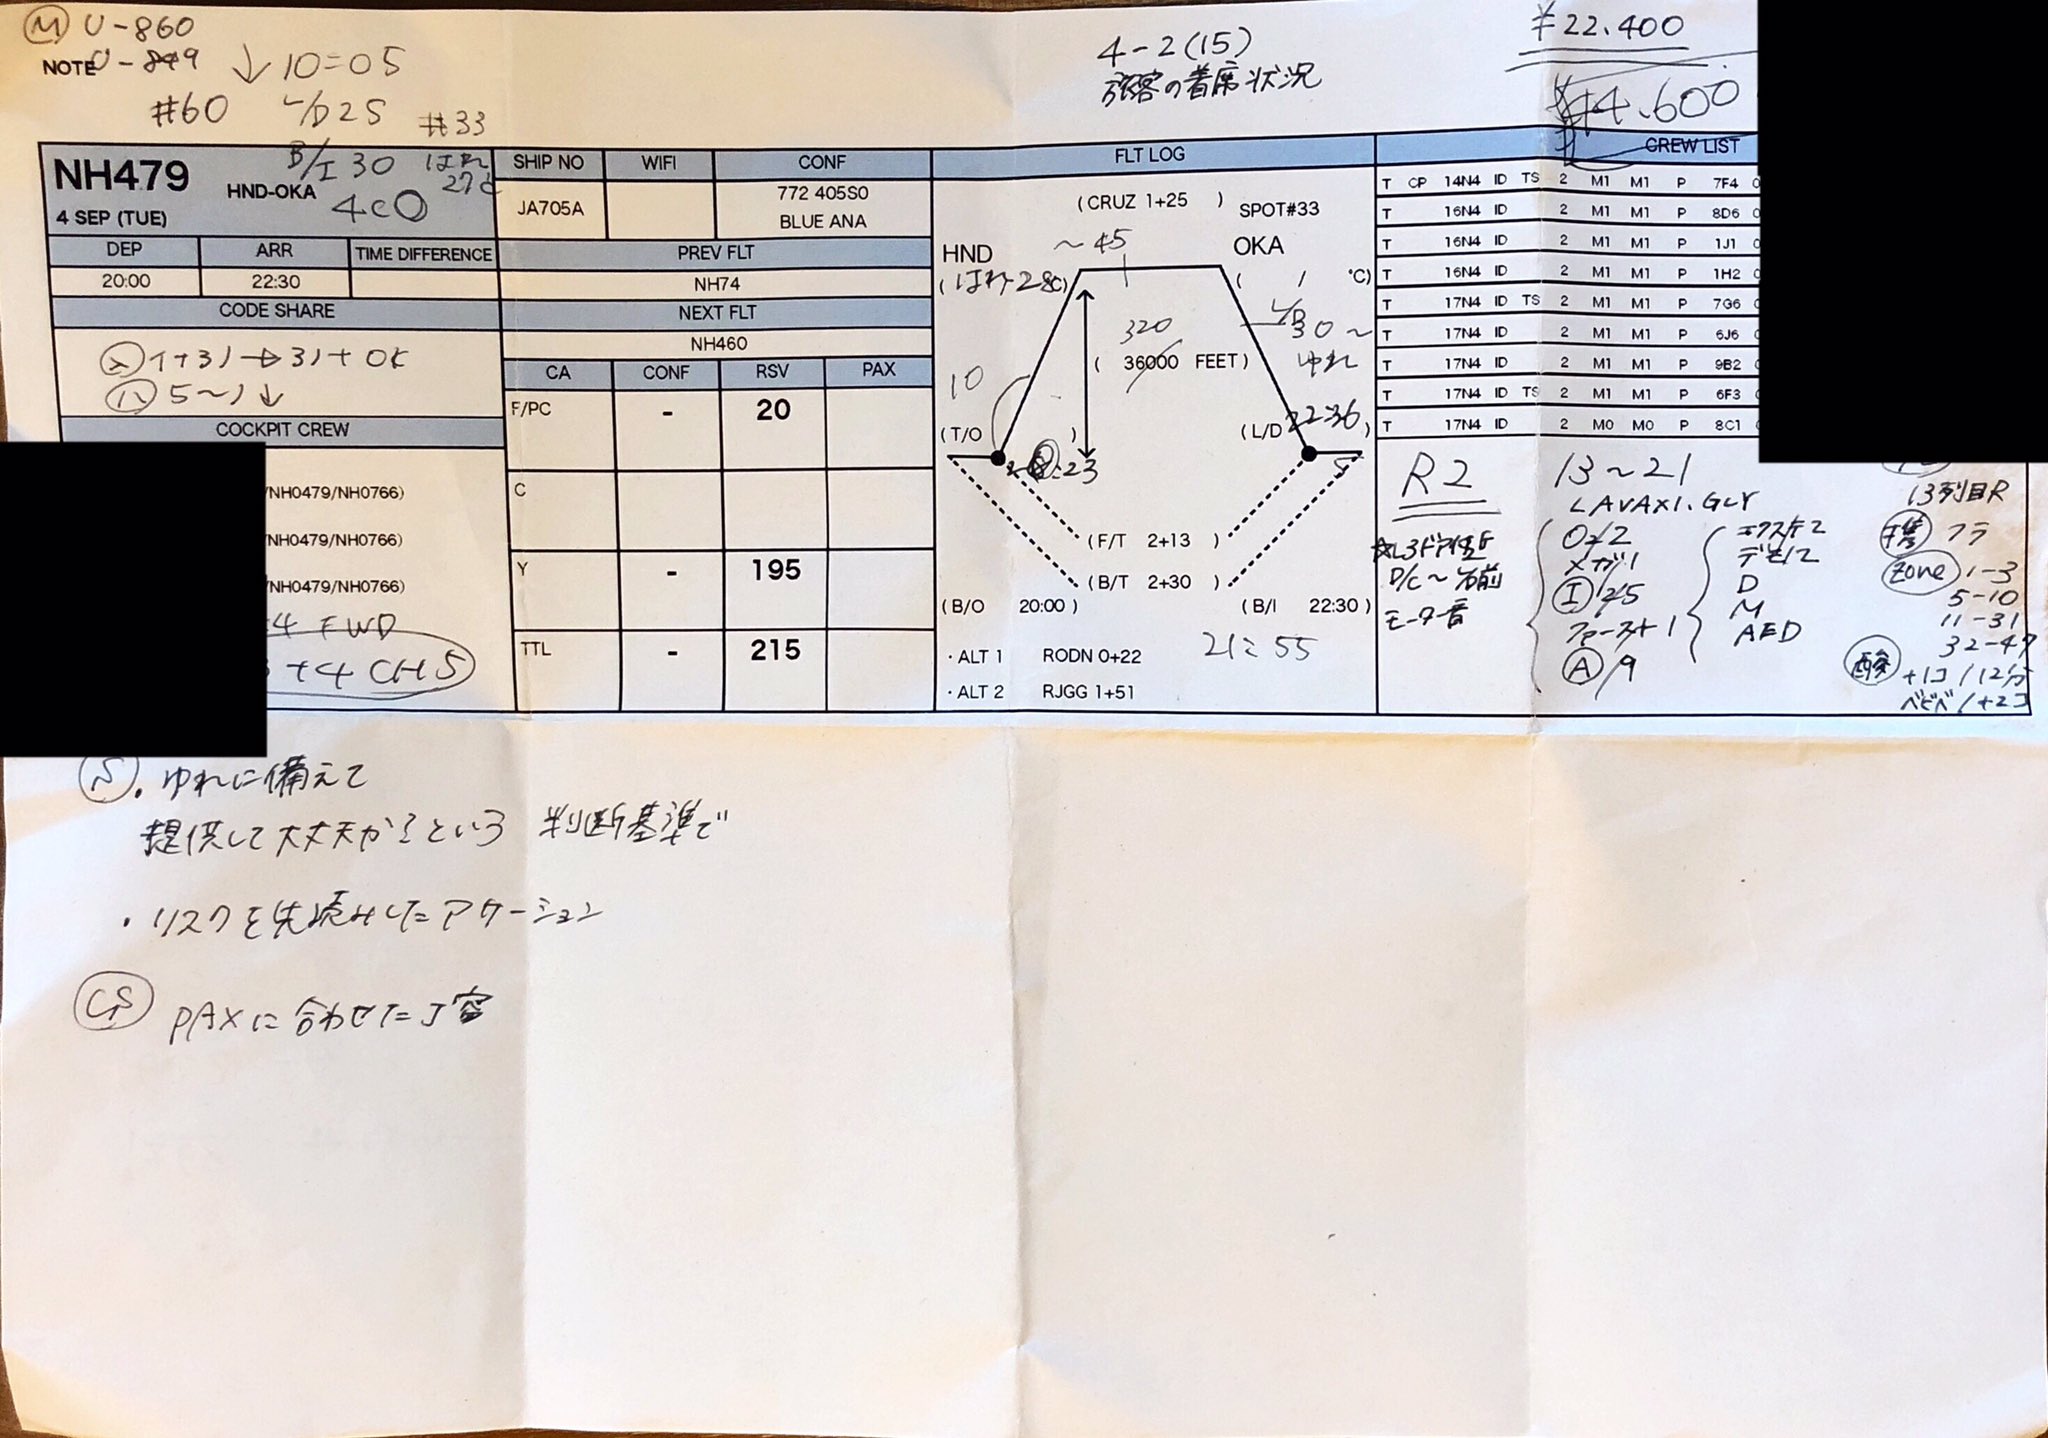 M U-860
NOTE
↓ 10=05
#60
#33
4-2(15)
旅客の着席状況
¥22.400
4.600
NH479
HND-OKA
4 SEP (TUE)
B/I 30
はれ
27℃
DEP
ARR
TIME DIFFERENCE
20:00
22:30
CODE SHARE
COCKPIT CREW
/NH0479/NH0766)
/NH0479/NH0766)
/NH0479/NH0766)
4 FWD
+4 CHS
SHIP NO
WIFI
CONF
JA705A
772 405S0
BLUE ANA
PREV FLT
NH74
NEXT FLT
NH460
CA
CONF
RSV
PAX
F/PC
-
20
C
Y
-
195
TTL
-
215
FLT LOG
(CRUZ 1+25 )
SPOT#33
HND
~45
OKA
( / ℃)
10
320
( 36000 FEET)
30~
ゆれ
(T/O )
:23
(L/D 22:36 )
(F/T 2+13 )
(B/T 2+30 )
(B/O 20:00 )
(B/I 22:30 )
・ALT 1 RODN 0+22
21=55
・ALT 2 RJGG 1+51
CREW LIST
T CP 14N4 ID TS 2 M1 M1 P 7F4
T 16N4 ID 2 M1 M1 P 8D6
T 16N4 ID 2 M1 M1 P 1J1
T 16N4 ID 2 M1 M1 P 1H2
T 17N4 ID TS 2 M1 M1 P 7G6
T 17N4 ID 2 M1 M1 P 6J6
T 17N4 ID 2 M1 M1 P 9B2
T 17N4 ID TS 2 M1 M1 P 6F3
T 17N4 ID 2 M0 M0 P 8C1
R2
モーター音
13~21
LAVAX1.GLY
メガ1
D
M
AED
13列目R
zone 1-3
5-10
11-31
32-49
酸 +1コ/12分
ゆれに備えて
提供して大丈夫か?という 判断基準で
・リスクを先読みしたアケーション
CS PAXに合わせたJ容